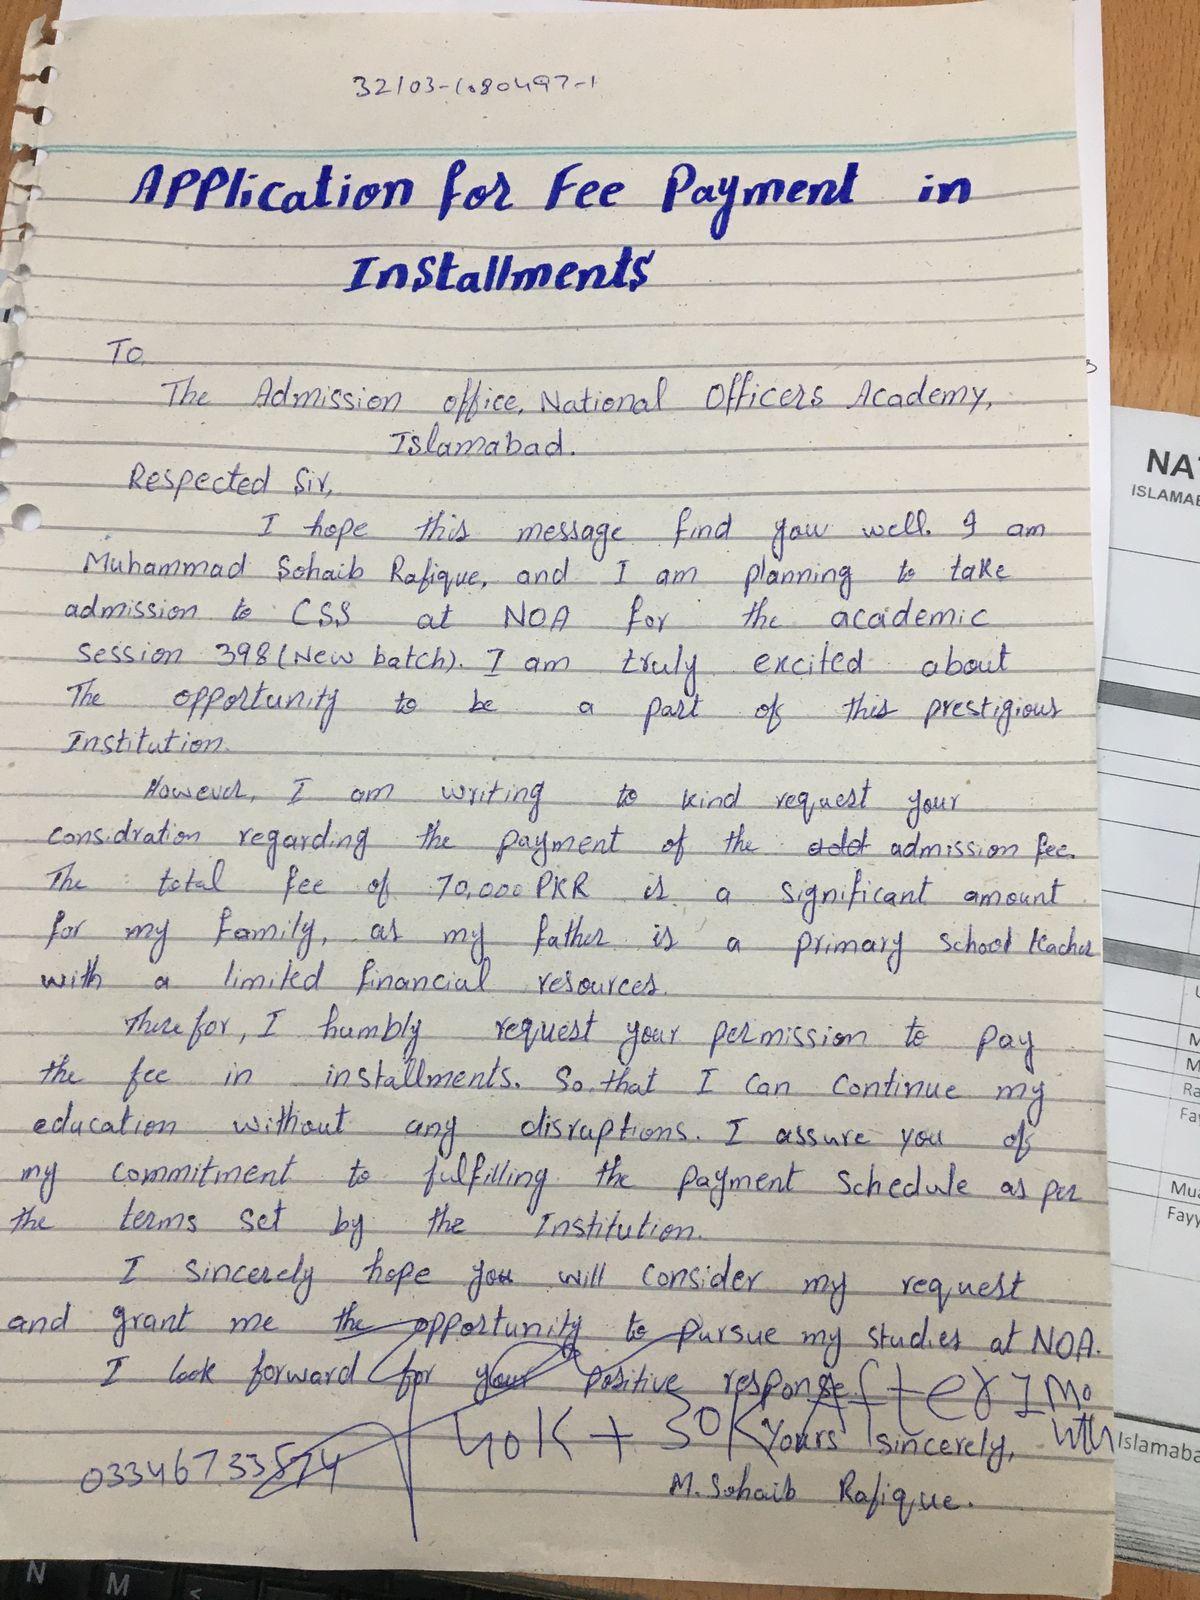 32103-1080497-1
Application for Fee Payment in
Installments
To,
The Admission office, National Officers Academy,
Islamabad.
Respected Sir,
I hope this message find you well. I am
Muhammad Sohaib Rafique, and I am planning to take
admission to CSS at NOA for the academic
session 398 (New batch). I am truly excited about
The opportunity to be a part of this prestigious
Institution.
However, I am writing to kind request your
considration regarding the payment of the admission fee.
The total fee of 70,000 PKR is a significant amount
for my family, as my father is a primary school teacher
with a limited financial resources.
Therefor, I humbly request your permission to pay
the fee in installments. So that I can continue my
education without any disruptions. I assure you of
my commitment to fulfilling the payment schedule as per
the terms set by the Institution.
I sincerely hope you will consider my request
and grant me the opportunity to pursue my studies at NOA.
I look forward for your positive response.
40K + 30K After 1 Month
Yours sincerely,
03346733574
M. Sohaib Rafique.
NA
ISLAMAB
M
M
Ra
Fay
Mua
Fayy
Islamaba
N M